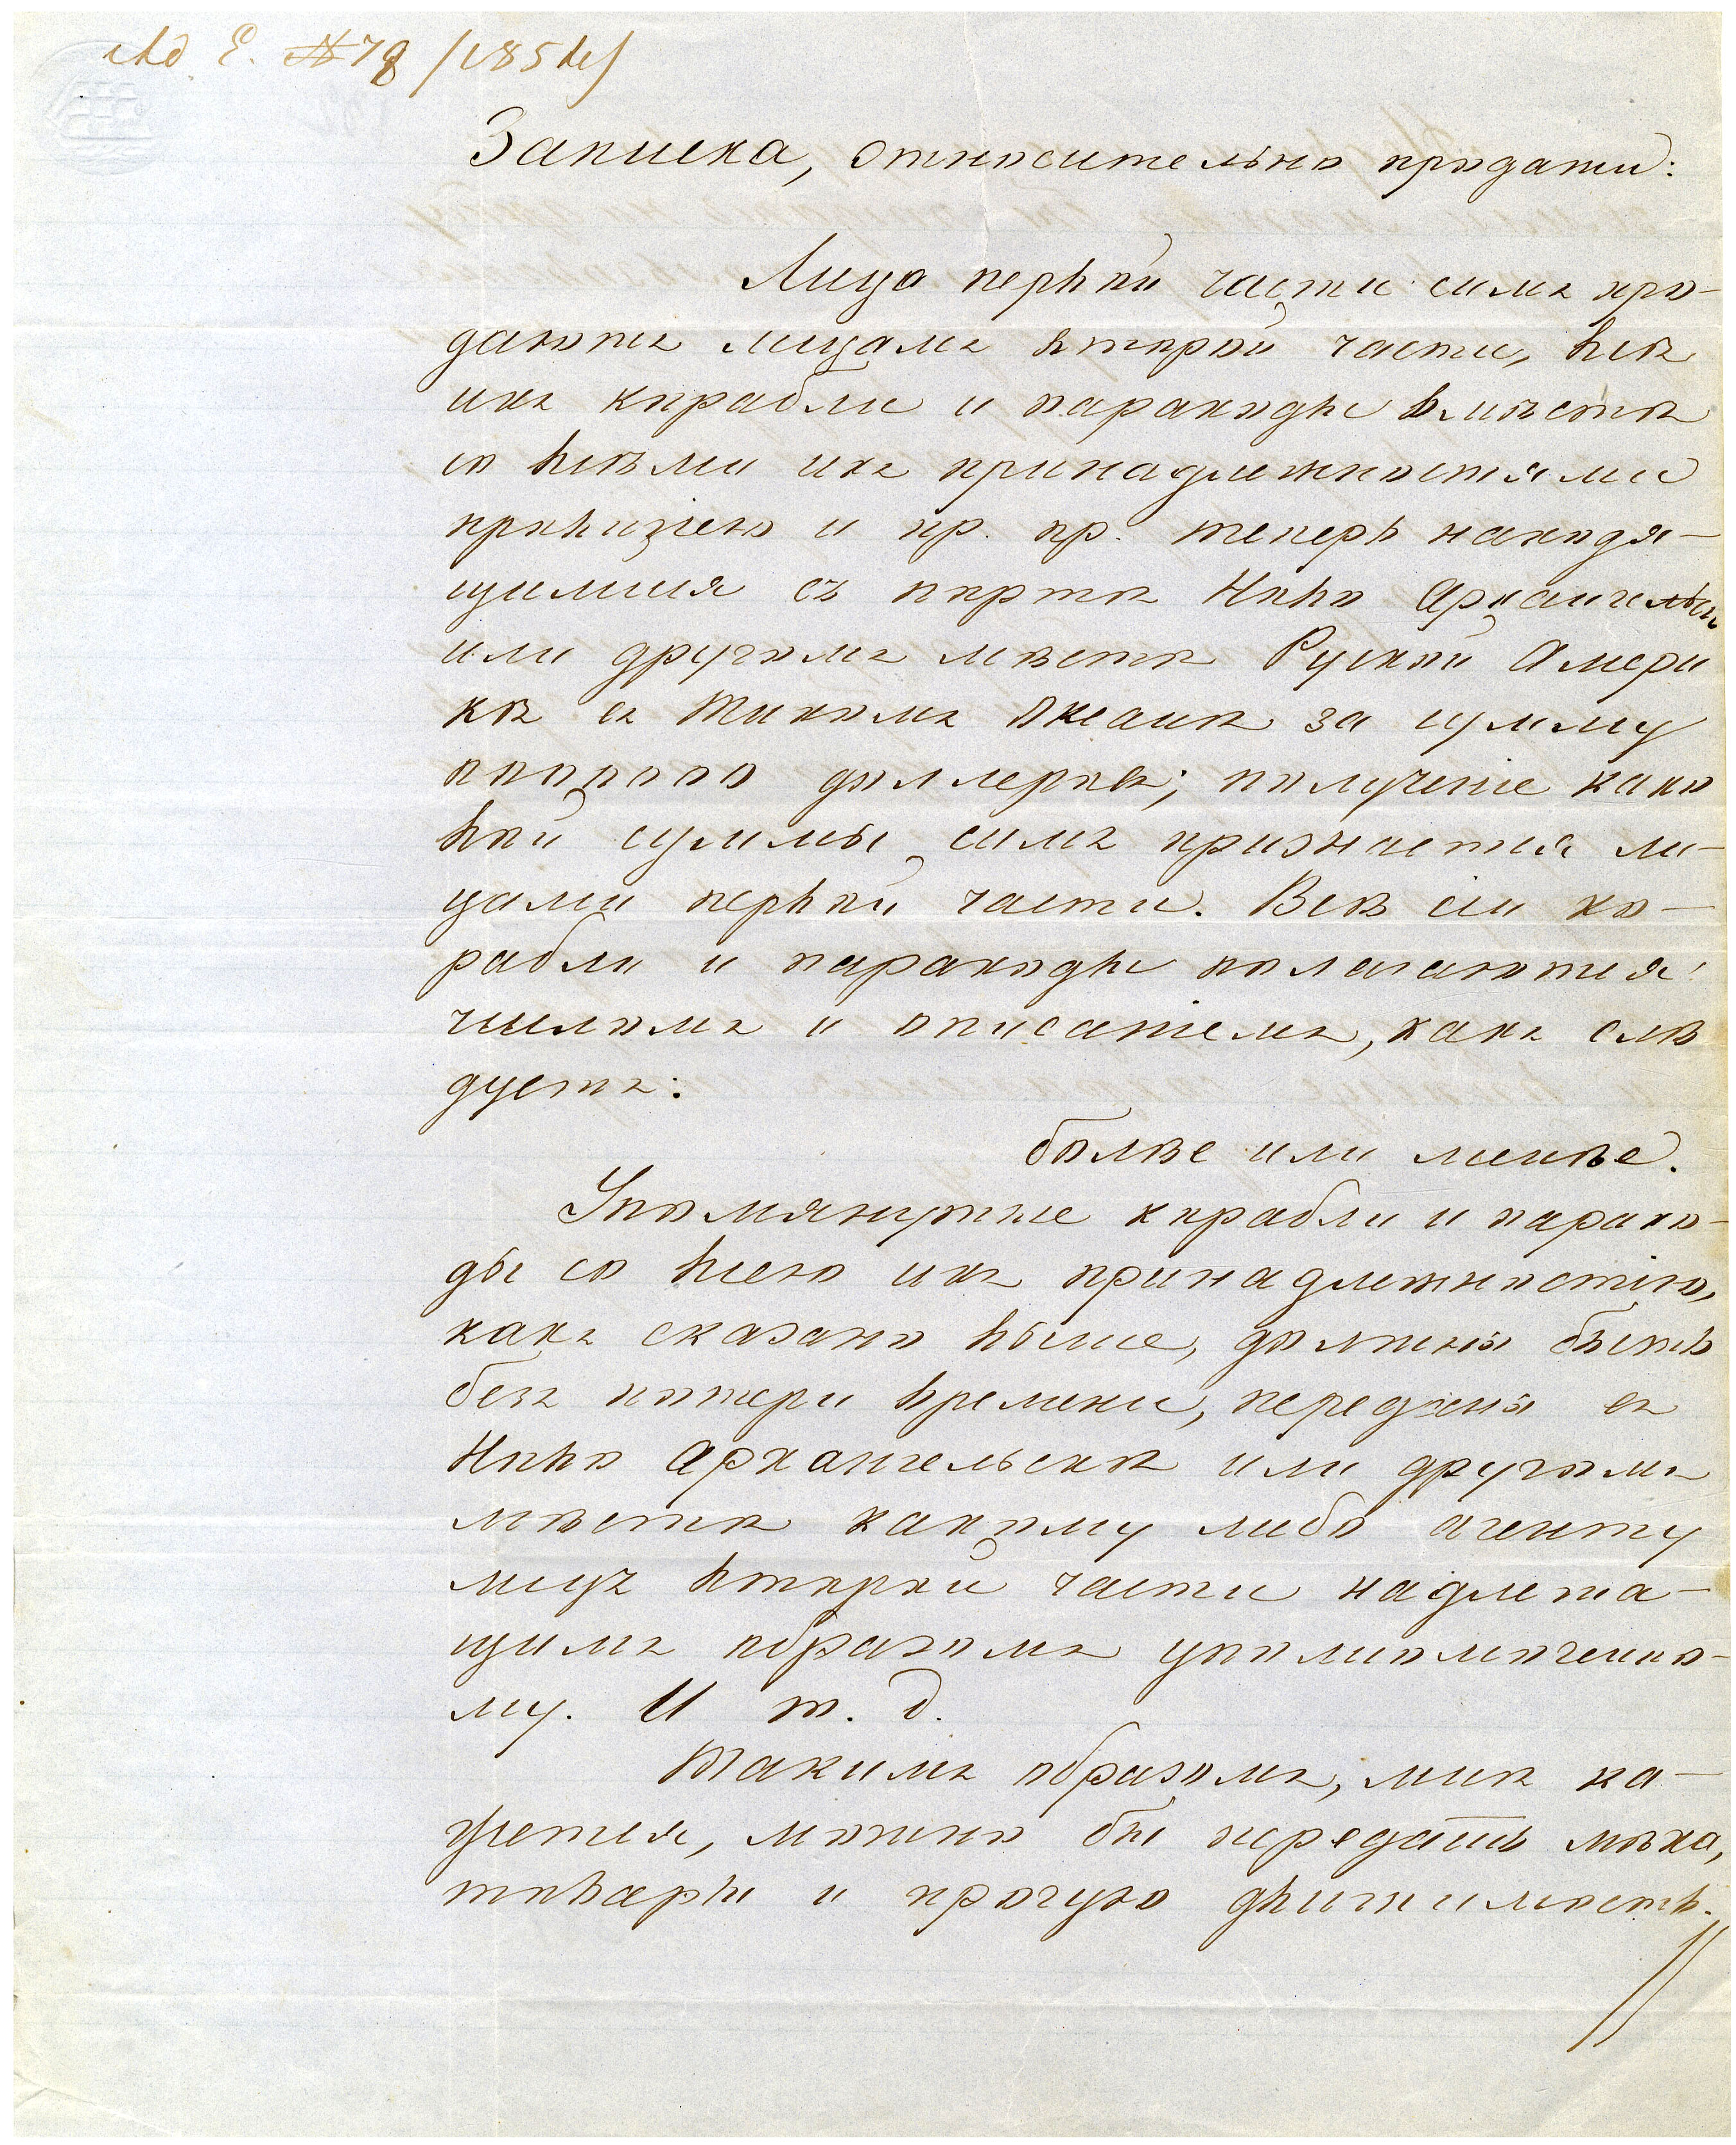 Ad. E. №78 /1854/
Записка, относительно продажи:
Лица первой части симъ про-
даютъ лицамъ второй части, всѣ
ихъ корабли и пароходы вмѣстѣ
со всѣми ихъ принадлежностями
провизіею и пр. пр. теперь находя-
щимися съ портѣ Ново Архангельск
или другомъ мѣстѣ Руской Амери
кѣ въ Тихомъ Океанѣ за сумму
оооооо доллеровъ; полученіе како
вой суммы симъ признается ли-
цами первой части. Всѣ сіи ко-
рабли и пароходы полагаются
числомъ и описаніемъ, какъ слѣ
дуетъ:
болѣе или менѣе.
Упомянутые корабли и парохо-
ды со всею ихъ принадлежностію,
какъ сказано выше, должны быть
безъ потери времени, переданы въ
Ново Архангельскѣ или другомъ
мѣстѣ какому либо агенту
лицъ второй части надлежа-
щимъ образомъ уполномоченно-
му. И т. д.
Такимъ образомъ, мнѣ ка-
жется, можно бы передать мѣха,
товары и прочую движимость.